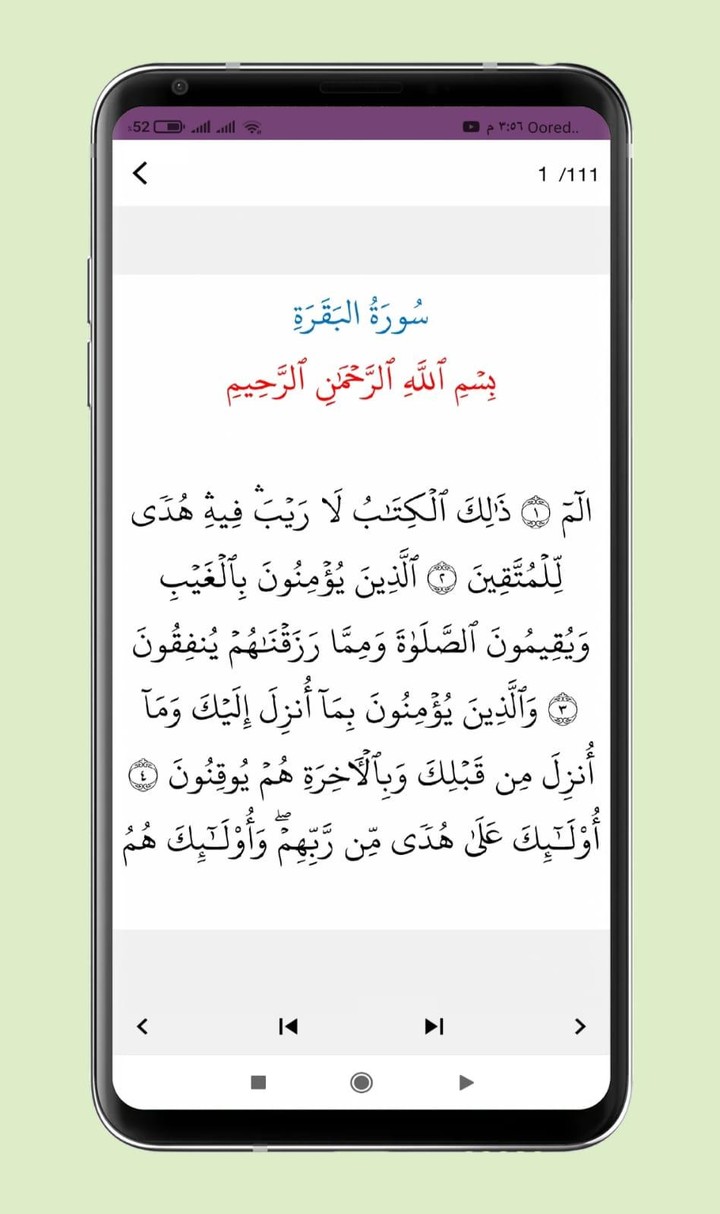 52٪ ٣:٥٦ م Oored..
1 /111
سُورَةُ البَقَرَةِ
بِسۡمِ ٱللَّهِ ٱلرَّحۡمَٰنِ ٱلرَّحِيمِ
الٓمٓ ١ ذَٰلِكَ ٱلۡكِتَٰبُ لَا رَيۡبَۛ فِيهِۛ هُدٗى
لِّلۡمُتَّقِينَ ٢ ٱلَّذِينَ يُؤۡمِنُونَ بِٱلۡغَيۡبِ
وَيُقِيمُونَ ٱلصَّلَوٰةَ وَمِمَّا رَزَقۡنَٰهُمۡ يُنفِقُونَ
٣ وَٱلَّذِينَ يُؤۡمِنُونَ بِمَآ أُنزِلَ إِلَيۡكَ وَمَآ
أُنزِلَ مِن قَبۡلِكَ وَبِٱلۡأٓخِرَةِ هُمۡ يُوقِنُونَ ٤
أُوْلَٰٓئِكَ عَلَىٰ هُدٗى مِّن رَّبِّهِمۡۖ وَأُوْلَٰٓئِكَ هُمُ